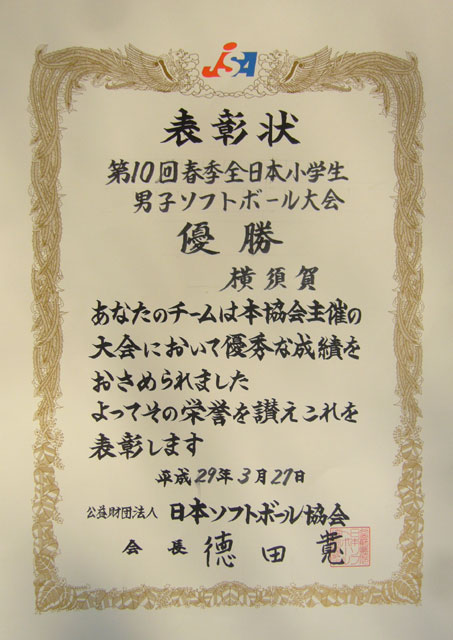 JSA
表彰状
第10回春季全日本小学生
男子ソフトボール大会
優勝
横須賀
あなたのチームは本協会主催の
大会において優秀な成績を
おさめられました
よってその栄誉を讃えこれを
表彰します
平成29年3月27日
公益財団法人 日本ソフトボール協会
会長 德田寛